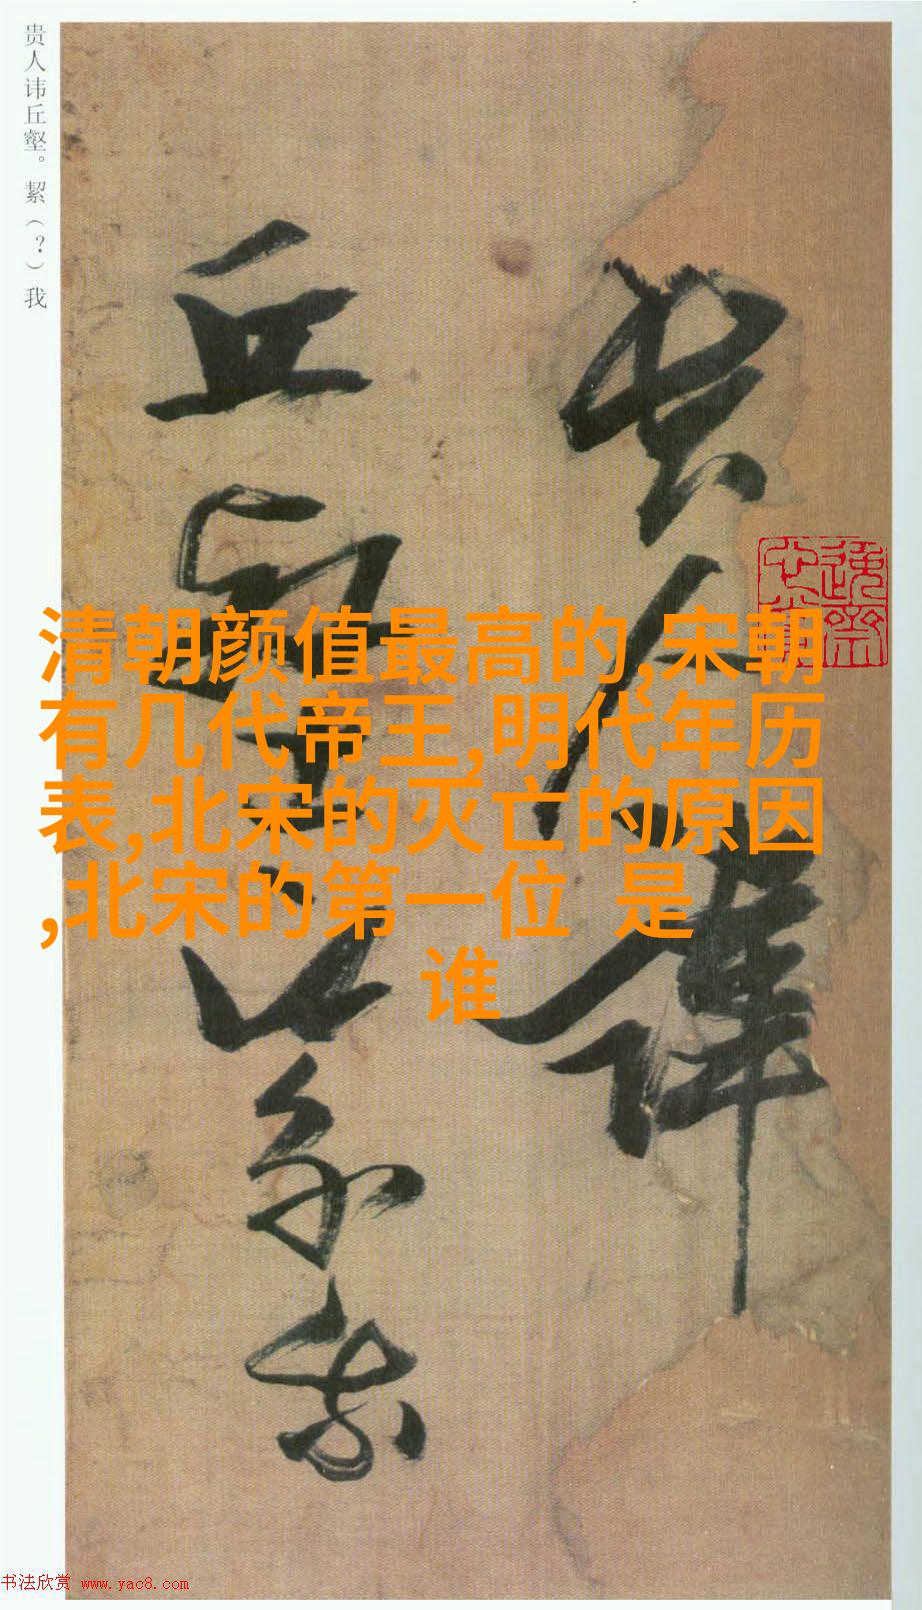 贵人讳丘壑。絜（？）我
贵人讳
丘壑絜我
清朝颜值最高的,宋朝
有几代帝王,明代年历
表,北宋的灭亡的原因
,北宋的第一位 是
谁
书法欣赏 www.yac8.com